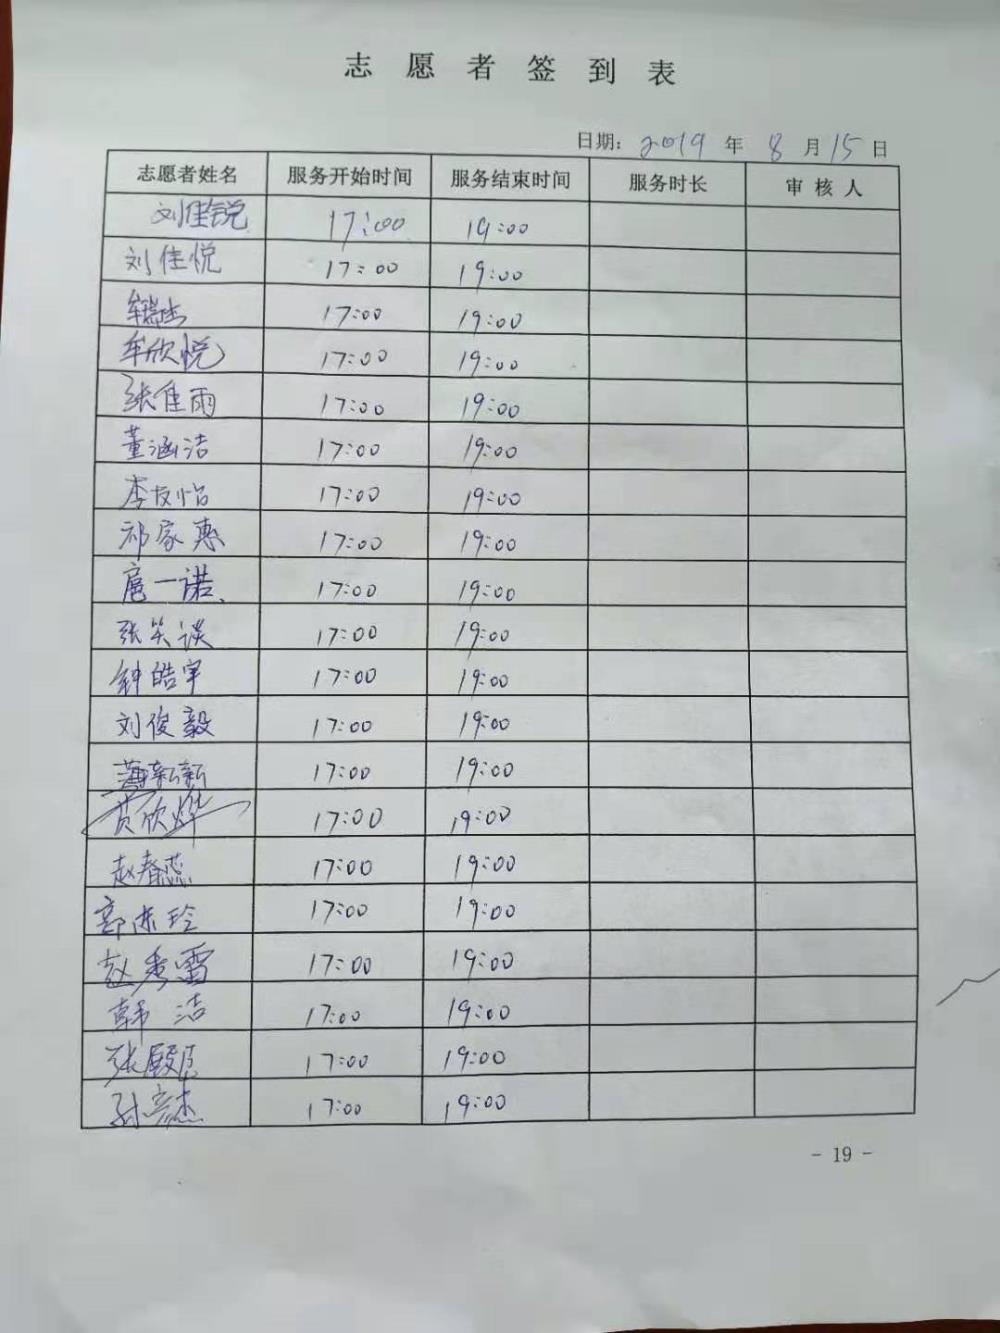 志愿者签到表
日期：2019年8月15日
志愿者姓名 服务开始时间 服务结束时间 服务时长 审核人
刘佳锐 17:00 19:00
刘佳悦 17:00 19:00
17:00 19:00
牟欣悦 17:00 19:00
张佳雨 17:00 19:00
董涵洁 17:00 19:00
李友怡 17:00 19:00
祁家惠 17:00 19:00
扈一诺 17:00 19:00
张笑谈 17:00 19:00
钟皓宇 17:00 19:00
刘俊毅 17:00 19:00
17:00 19:00
黄欣烨 17:00 19:00
赵春蕊 17:00 19:00
郭亦玲 17:00 19:00
赵秀雪 17:00 19:00
韩洁 17:00 19:00
张殿 17:00 19:00
孙彦杰 17:00 19:00
- 19 -